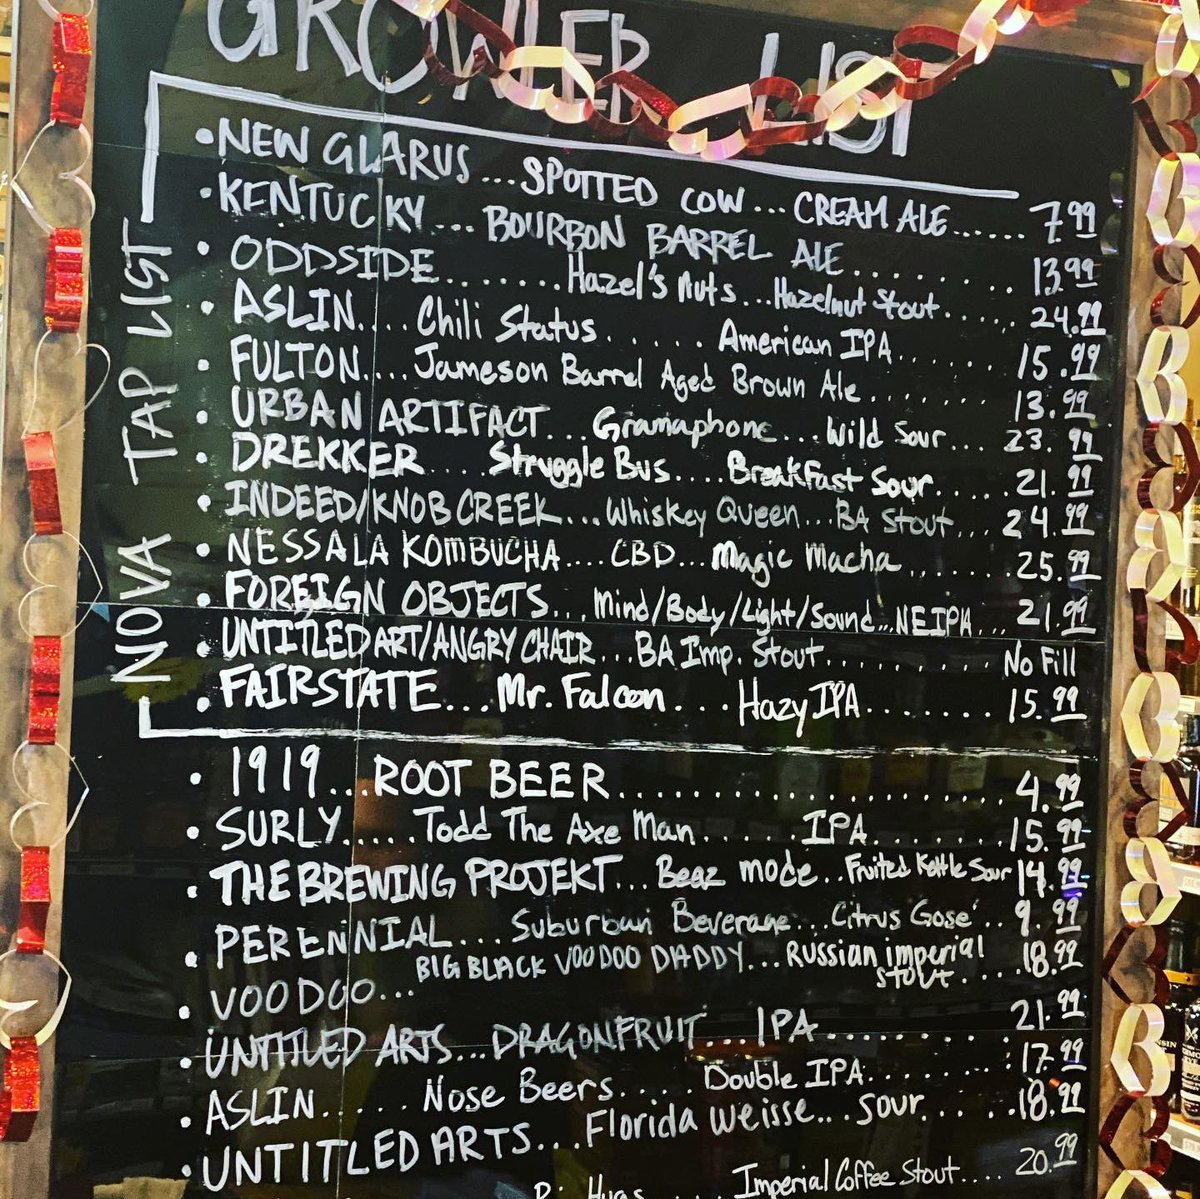 GROWLER LIST
NOVA TAP LIST
• NEW GLARUS...SPOTTED COW...CREAM ALE...... 7.99
• KENTUCKY....BOURBON BARREL ALE......... 13.99
• ODDSIDE.......Hazel's Nuts...Hazelnut Stout..... 24.99
• ASLIN....Chili Status......American IPA...... 15.99
• FULTON....Jameson Barrel Aged Brown Ale....... 13.99
• URBAN ARTIFACT...Gramaphone...Wild Sour... 23.99
• DREKKER....Struggle Bus....Breakfast Sour..... 21.99
• INDEED/KNOB CREEK...Whiskey Queen...BA Stout... 24.99
• NESSALA KOMBUCHA....CBD...Magic Macha....... 25.99
• FOREIGN OBJECTS...Mind/Body/Light/Sound...NEIPA... 21.99
• UNTITLED ART/ANGRY CHAIR...BA Imp. Stout.......... No Fill
• FAIRSTATE...Mr. Falcon...Hazy IPA....... 15.99
• 1919...ROOT BEER................. 4.99
• SURLY.....Todd The Axe Man......IPA....... 15.99
• THE BREWING PROJEKT...Beaz mode..Fruited Kettle Sour 14.99
• PERENNIAL...Suburban Beverage...Citrus Gose'.. 9.99
• VOODOO...BIG BLACK VOODOO DADDY...Russian imperial stout....... 18.99
• UNTITLED ARTS...DRAGONFRUIT...IPA......... 21.99
• ASLIN.....Nose Beers.....Double IPA........ 17.99
• UNTITLED ARTS...Florida Weisse...Sour...... 18.99
Hugs.....Imperial Coffee Stout.... 20.99